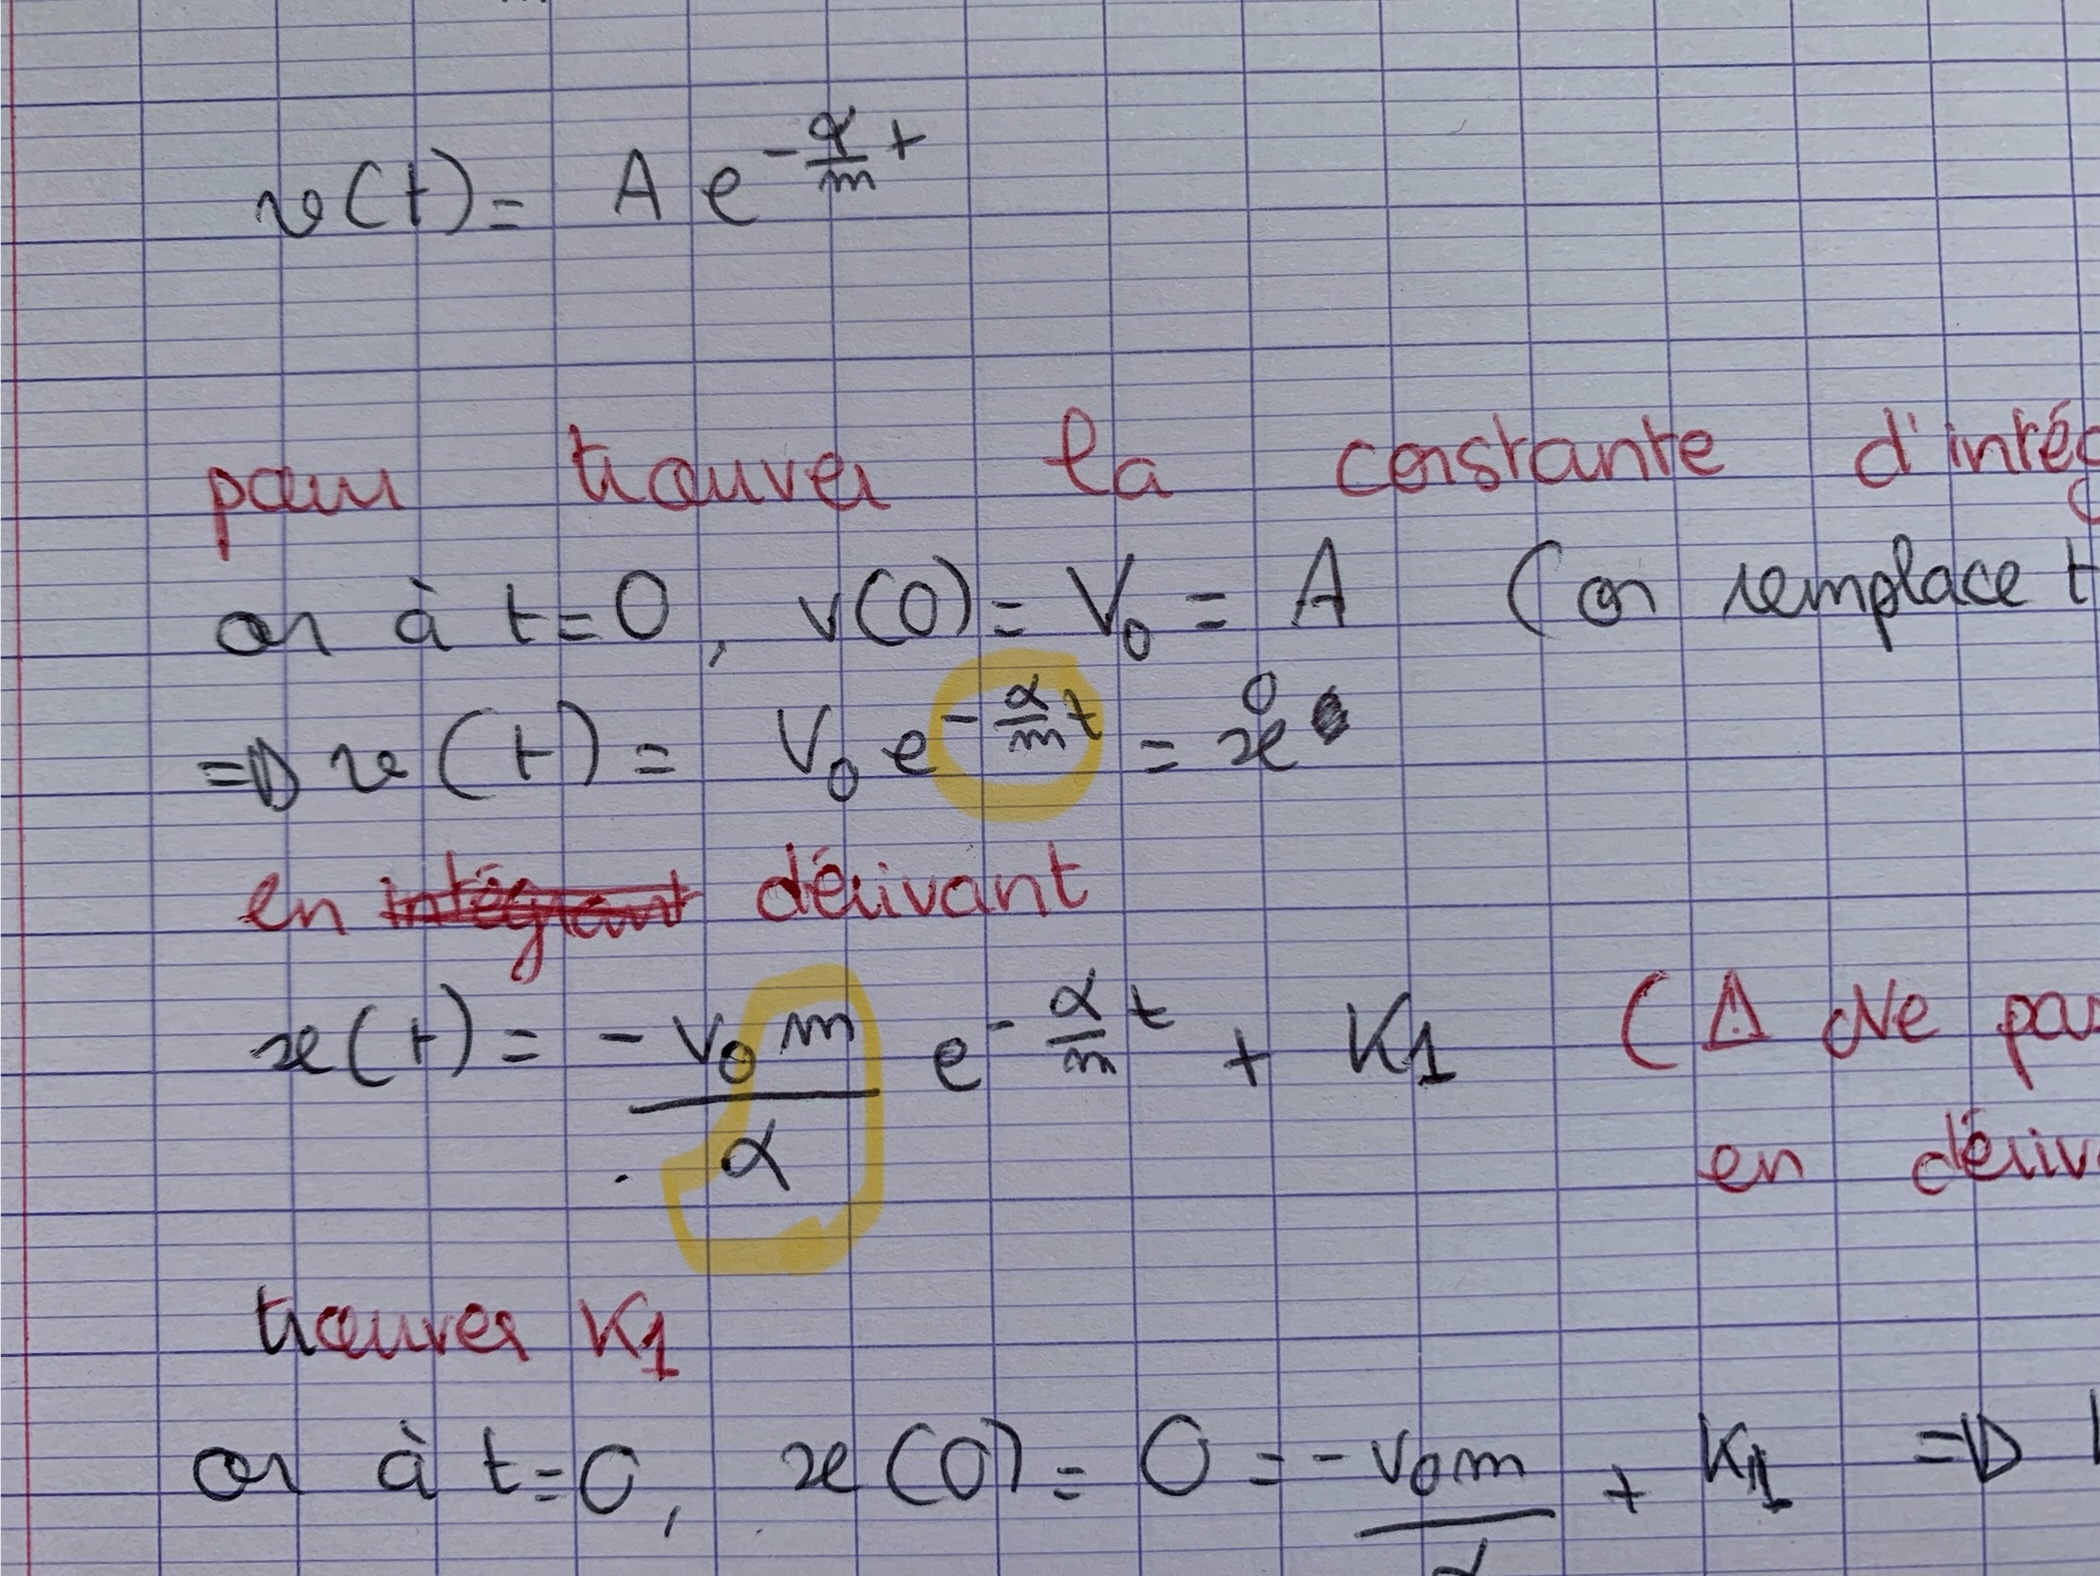 v(t) = A e^{-\frac{α}{m} t}
pour trouver la constante d'intég
or à t=0, v(0) = V₀ = A (on remplace t
=> v(t) = V₀ e^{-\frac{α}{m} t} = ẋ
en intégrant dérivant
x(t) = \frac{-V₀ m}{α} e^{-\frac{α}{m} t} + K1 (⚠ Ne pas
en dériv
trouver K1
or à t=0, x(0) = 0 = \frac{-V₀m}{α} + K1 =>